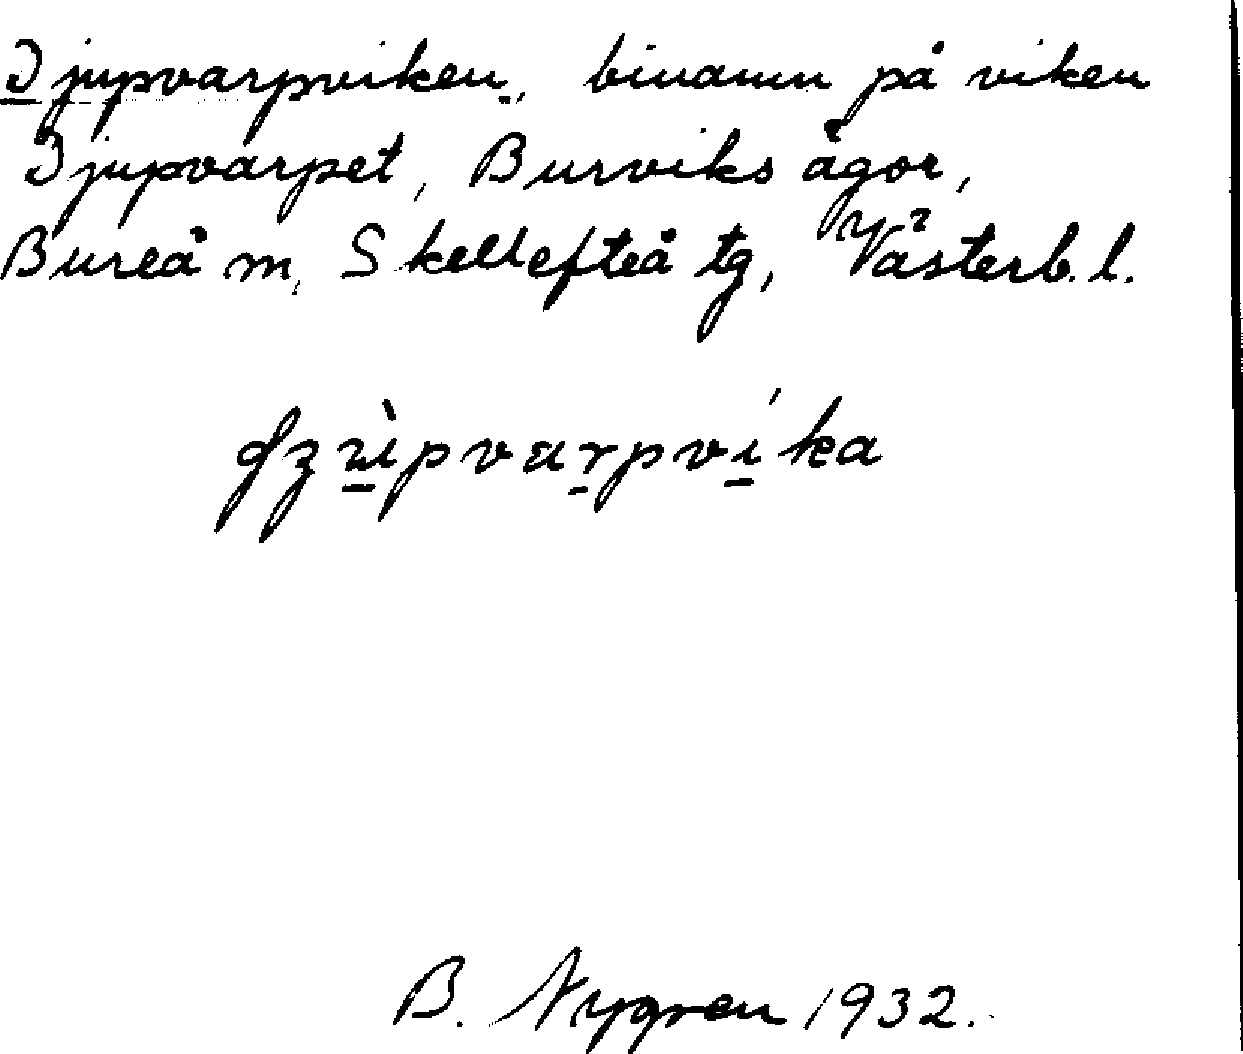 Djupvarpviken, binamn på viken
Djupvarpet, Burviks ägor,
Bureå sn, Skellefteå tg, Västerb. l.
B. Nygren 1932.